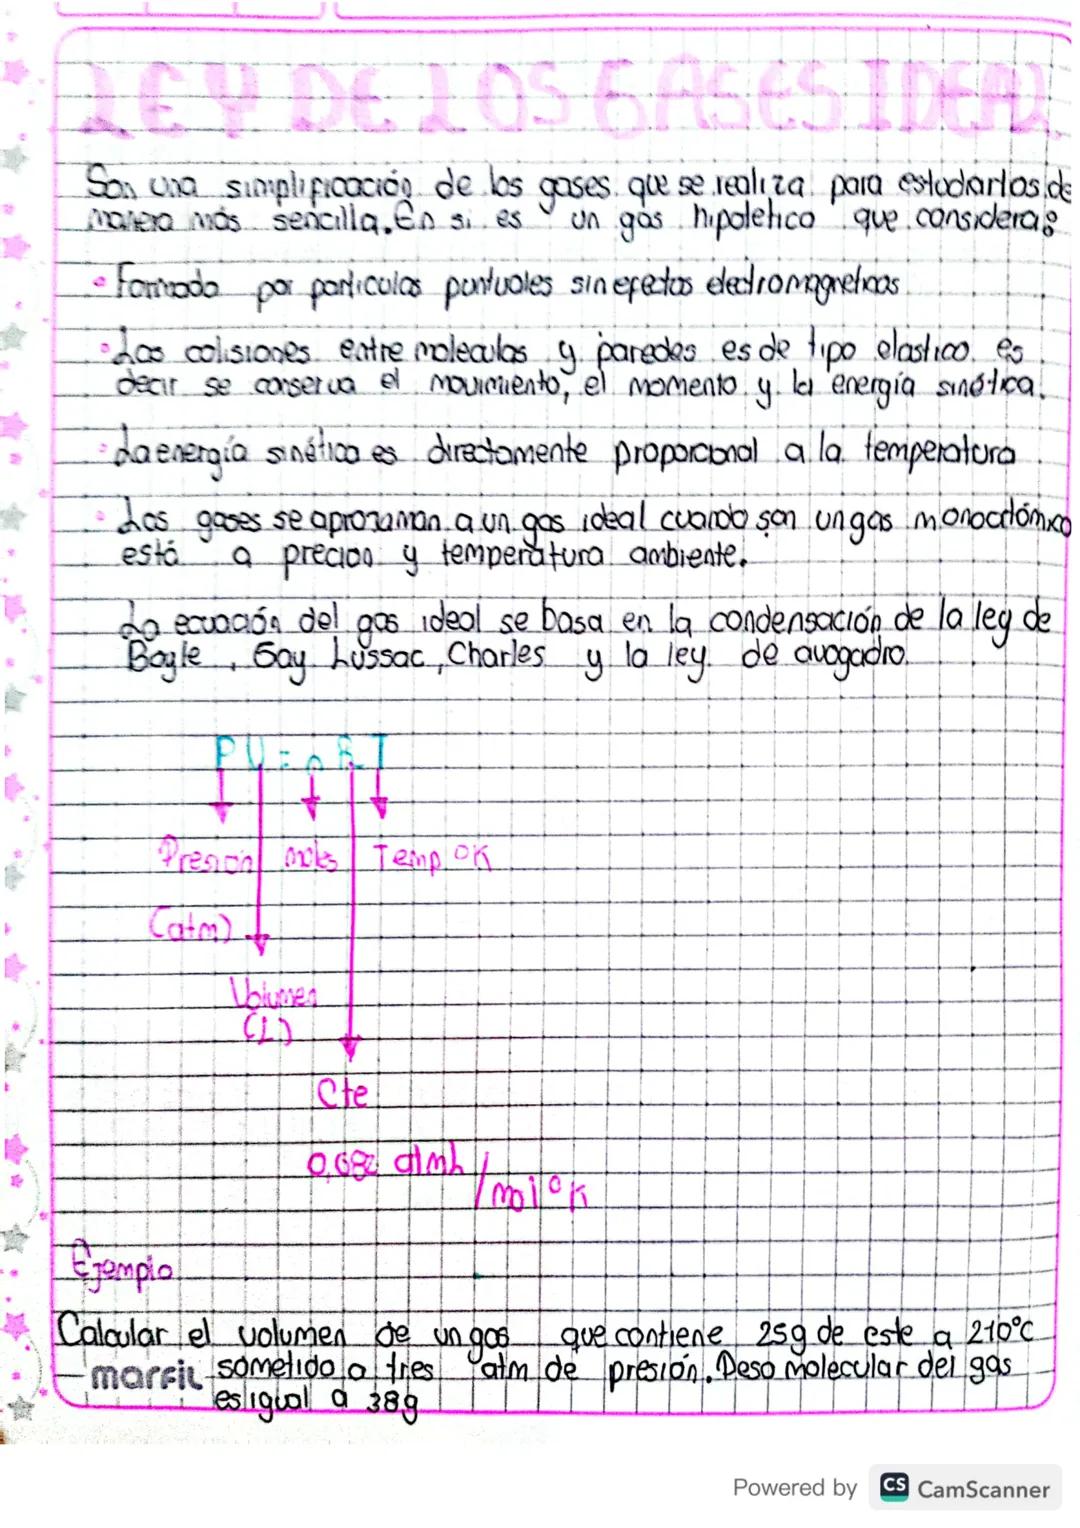 LEY DE LOS GASES IDEAL
Son una simplificación de los gases que se realiza para estudiarlos de
manera más sencilla. En si es un gas hipoletico que considera:
• Formado por particulas puntuales sin efectos electromagneticos
• Las colisiones entre moleculas y paredes es de tipo elastico es
decir se conserva el movimiento, el momento y la energía sinética.
• La energía sinética es directamente proporcional a la temperatura
• Los gases se aproxaman a un gas ideal cuando son un gas monoatómico
está a precion y temperatura ambiente.
La ecuación del gas ideal se basa en la condensación de la ley de
Bayle, Gay Lussac, Charles y la ley de avogadro.
PV = n R T
Presion moles Temp. °K
(atm)
Volumen
(L)
Cte
0,082 atmL
/mol °K
Ejemplo
Calcular el volumen de un gas que contiene 25g de este a 210°C
marfil sometido a tres atm de presión. Peso molecular del gas
es igual a 38g
Powered by CS CamScanner